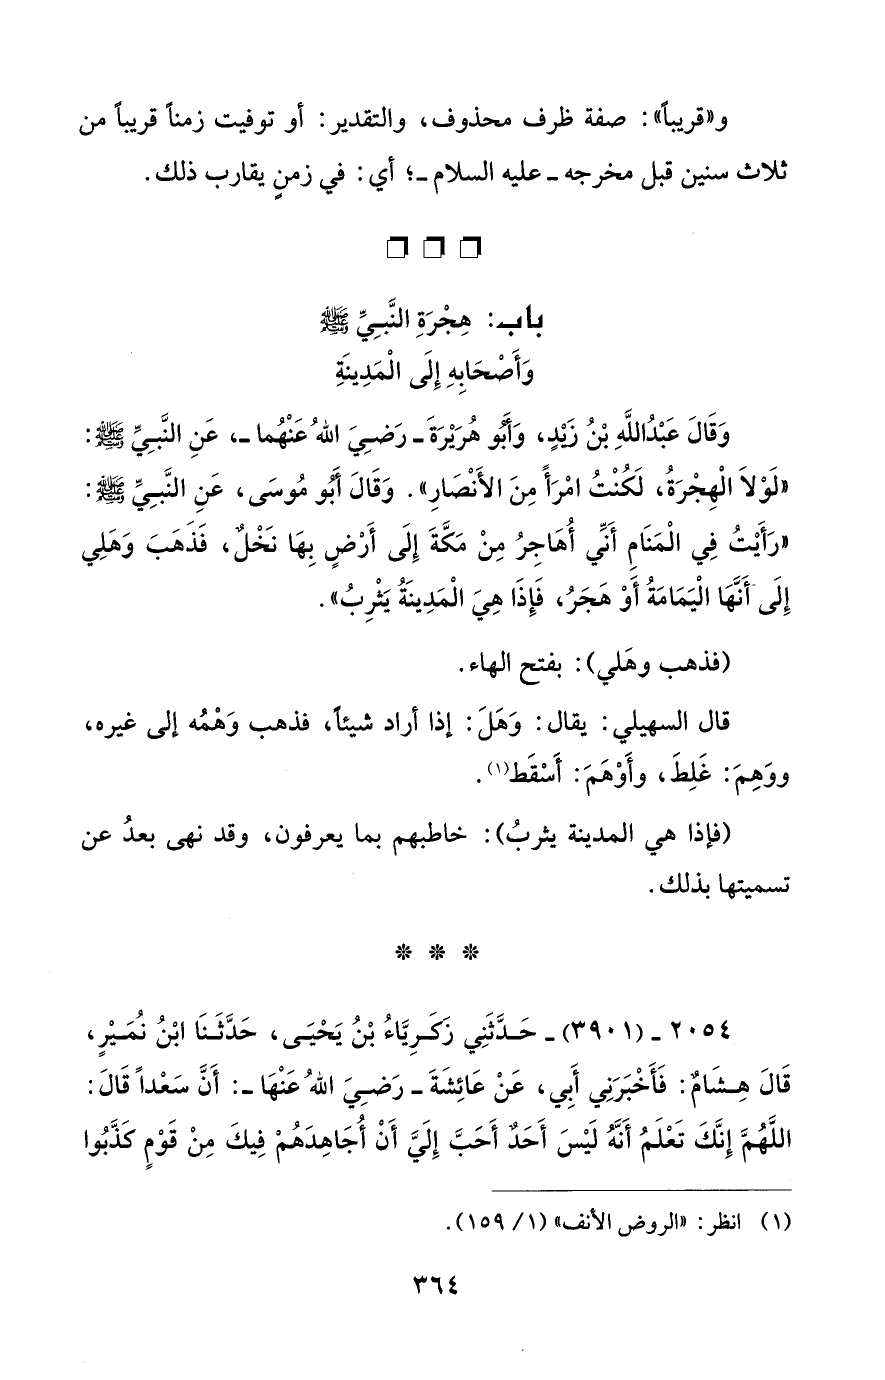 و«قريباً»: صفة ظرف محذوف، والتقدير: أو توفيت زمناً قريباً من
ثلاث سنين قبل مخرجه ـ عليه السلام ـ؛ أي: في زمنٍ يقارب ذلك.
❒ ❒ ❒
باب: هِجْرَةِ النَّبِيِّ ﷺ
وَأَصْحَابِهِ إِلَى الْمَدِينَةِ
وَقَالَ عَبْدُاللَّهِ بْنُ زَيْدٍ، وَأَبُو هُرَيْرَةَ ـ رَضِيَ اللهُ عَنْهُما ـ، عَنِ النَّبِيِّ ﷺ:
«لَوْلاَ الْهِجْرَةُ، لَكُنْتُ امْرَأً مِنَ الأَنْصَارِ». وَقَالَ أَبُو مُوسَى، عَنِ النَّبِيِّ ﷺ:
«رَأَيْتُ فِي الْمَنَامِ أَنِّي أُهَاجِرُ مِنْ مَكَّةَ إِلَى أَرْضٍ بِهَا نَخْلٌ، فَذَهَبَ وَهَلِي
إِلَى أَنَّهَا الْيَمَامَةُ أَوْ هَجَرُ، فَإِذَا هِيَ الْمَدِينَةُ يَثْرِبُ».
(فذهب وهَلي): بفتح الهاء.
قال السهيلي: يقال: وَهَلَ: إذا أراد شيئاً، فذهب وَهْمُه إلى غيره،
ووَهِمَ: غَلِطَ، وأَوْهَمَ: أَسْقَط(١).
(فإذا هي المدينة يثربُ): خاطبهم بما يعرفون، وقد نهى بعدُ عن
تسميتها بذلك.
❊ ❊ ❊
٢٠٥٤ ـ (٣٩٠١) ـ حَدَّثَنِي زَكَرِيَّاءُ بْنُ يَحْيَى، حَدَّثَنَا ابْنُ نُمَيْرٍ،
قَالَ هِشَامٌ: فَأَخْبَرَنِي أَبِي، عَنْ عَائِشَةَ ـ رَضِيَ اللهُ عَنْهَا ـ: أَنَّ سَعْداً قَالَ:
اللَّهُمَّ إِنَّكَ تَعْلَمُ أَنَّهُ لَيْسَ أَحَدٌ أَحَبَّ إِلَيَّ أَنْ أُجَاهِدَهُمْ فِيكَ مِنْ قَوْمٍ كَذَّبُوا
(١) انظر: «الروض الأنف» (١/ ١٥٩).
٣٦٤